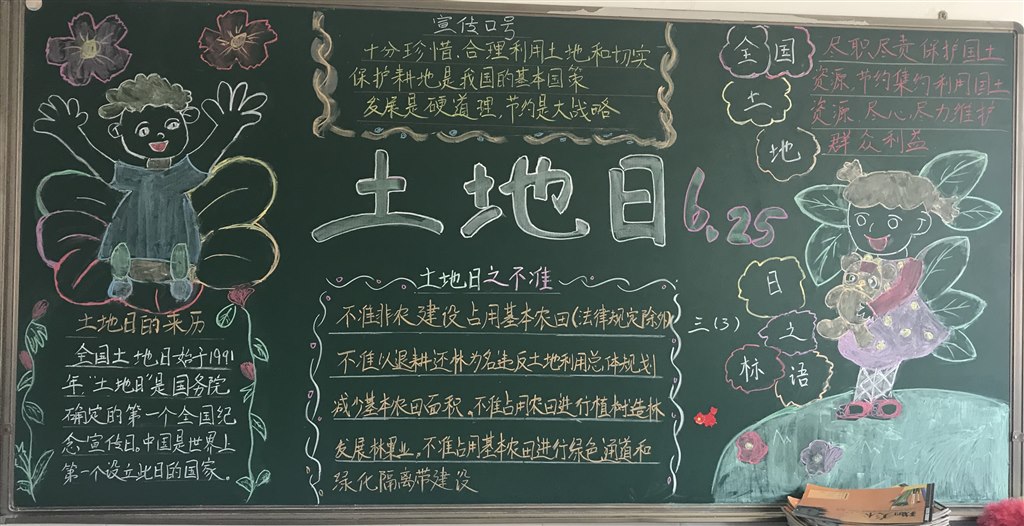 宣传口号
十分珍惜、合理利用土地和切实
保护耕地是我国的基本国策
发展是硬道理,节约是大战略
土地日 6.25
土地日的来历
全国土地日始于1991
年“土地日”是国务院
确定的第一个全国纪
念宣传日,中国是世界上
第一个设立此日的国家。
土地日之不准
不准非农建设占用基本农田(法律规定除外)
不准以退耕还林为名违反土地利用总体规划
减少基本农田面积。不准占用农田进行植树造林
发展林果业。不准占用基本农田进行绿色通道和
绿化隔离带建设
三(3)
全国
土
地
日
之
标语
尽职尽责保护国土
资源,节约集约利用国土
资源,尽心尽力维护
群众利益